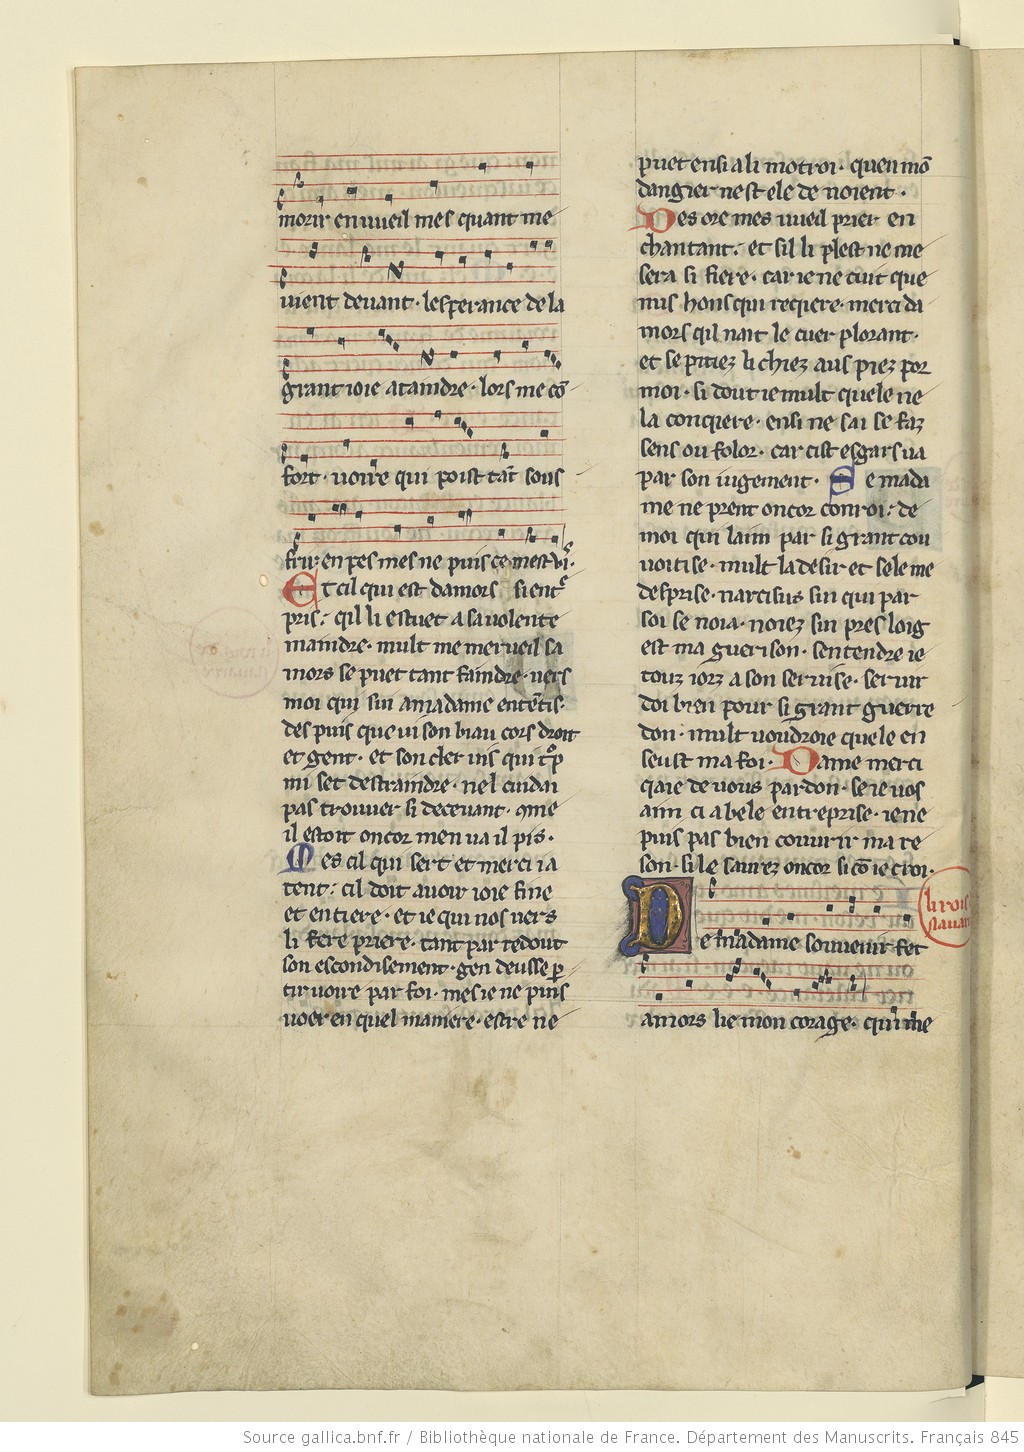 morir en vueil mes quant me
vient devant · lesperance de la
grant ioie ataindre · lors me cō
fort · voire qui poist tāt sous
frir en pes mes ne puis ce mest vis.
Et cil qui est damors si ent
pris : qil li estuet a sa volente
maindre · mult me merveil sa
mors se puet tant faindre · vers
moi qui sui a madame ententis ·
des puis que vi son biau cors droit
et gent · et son cler vis qui
mi set destraindre · nel cuidai
pas trouver si decevant · 9me
il estoit oncor men va il pis ·
Mes cil qui sert et merci ia
tent : cil doit avoir ioie fine
et entiere · et ie qui nos vers
li fere priere · tant par redout
son escondisement · gen deusse p
tir voire par foi · mes ie ne puis
voer en quel maniere · estre ne
puet ensi a li motroi · quen mō
dangier nest ele de noient ·
Des ore mes vueil prier en
chantant : et sil li plest ne me
sera si fiere · car ie ne cuit que
nus hons qui reqiere · merci da
mors qil nait le cuer plorant ·
et se pitiez li chiez aus piez por
moi · si dout ie mult quele ne
la conqiere · ensi ne sai se faz
sens ou folor · car cist esgars va
par son iugement · Se mada
me ne prent oncor conroi : de
moi qui laim par si grant cou
voitise · mult la desir et sele me
desprise · narcisus sui qui par
soi se noia · noiez sui pres loig
est ma guerison · sentendre ie
touz iorz a son servise · servir
doi bien pour si grant guerre
don · mult voudroie quele en
seust ma foi · Dame merci
qaie de vous pardon · se ie vos
aim ci a bele entreprise · ie ne
puis pas bien couvrir ma re
son · si le savrez oncor si cō ie croi ·
li rois
navarre
De madame souvenir fet
amors lie mon corage · qui me
Source gallica.bnf.fr / Bibliothèque nationale de France. Département des Manuscrits. Français 845